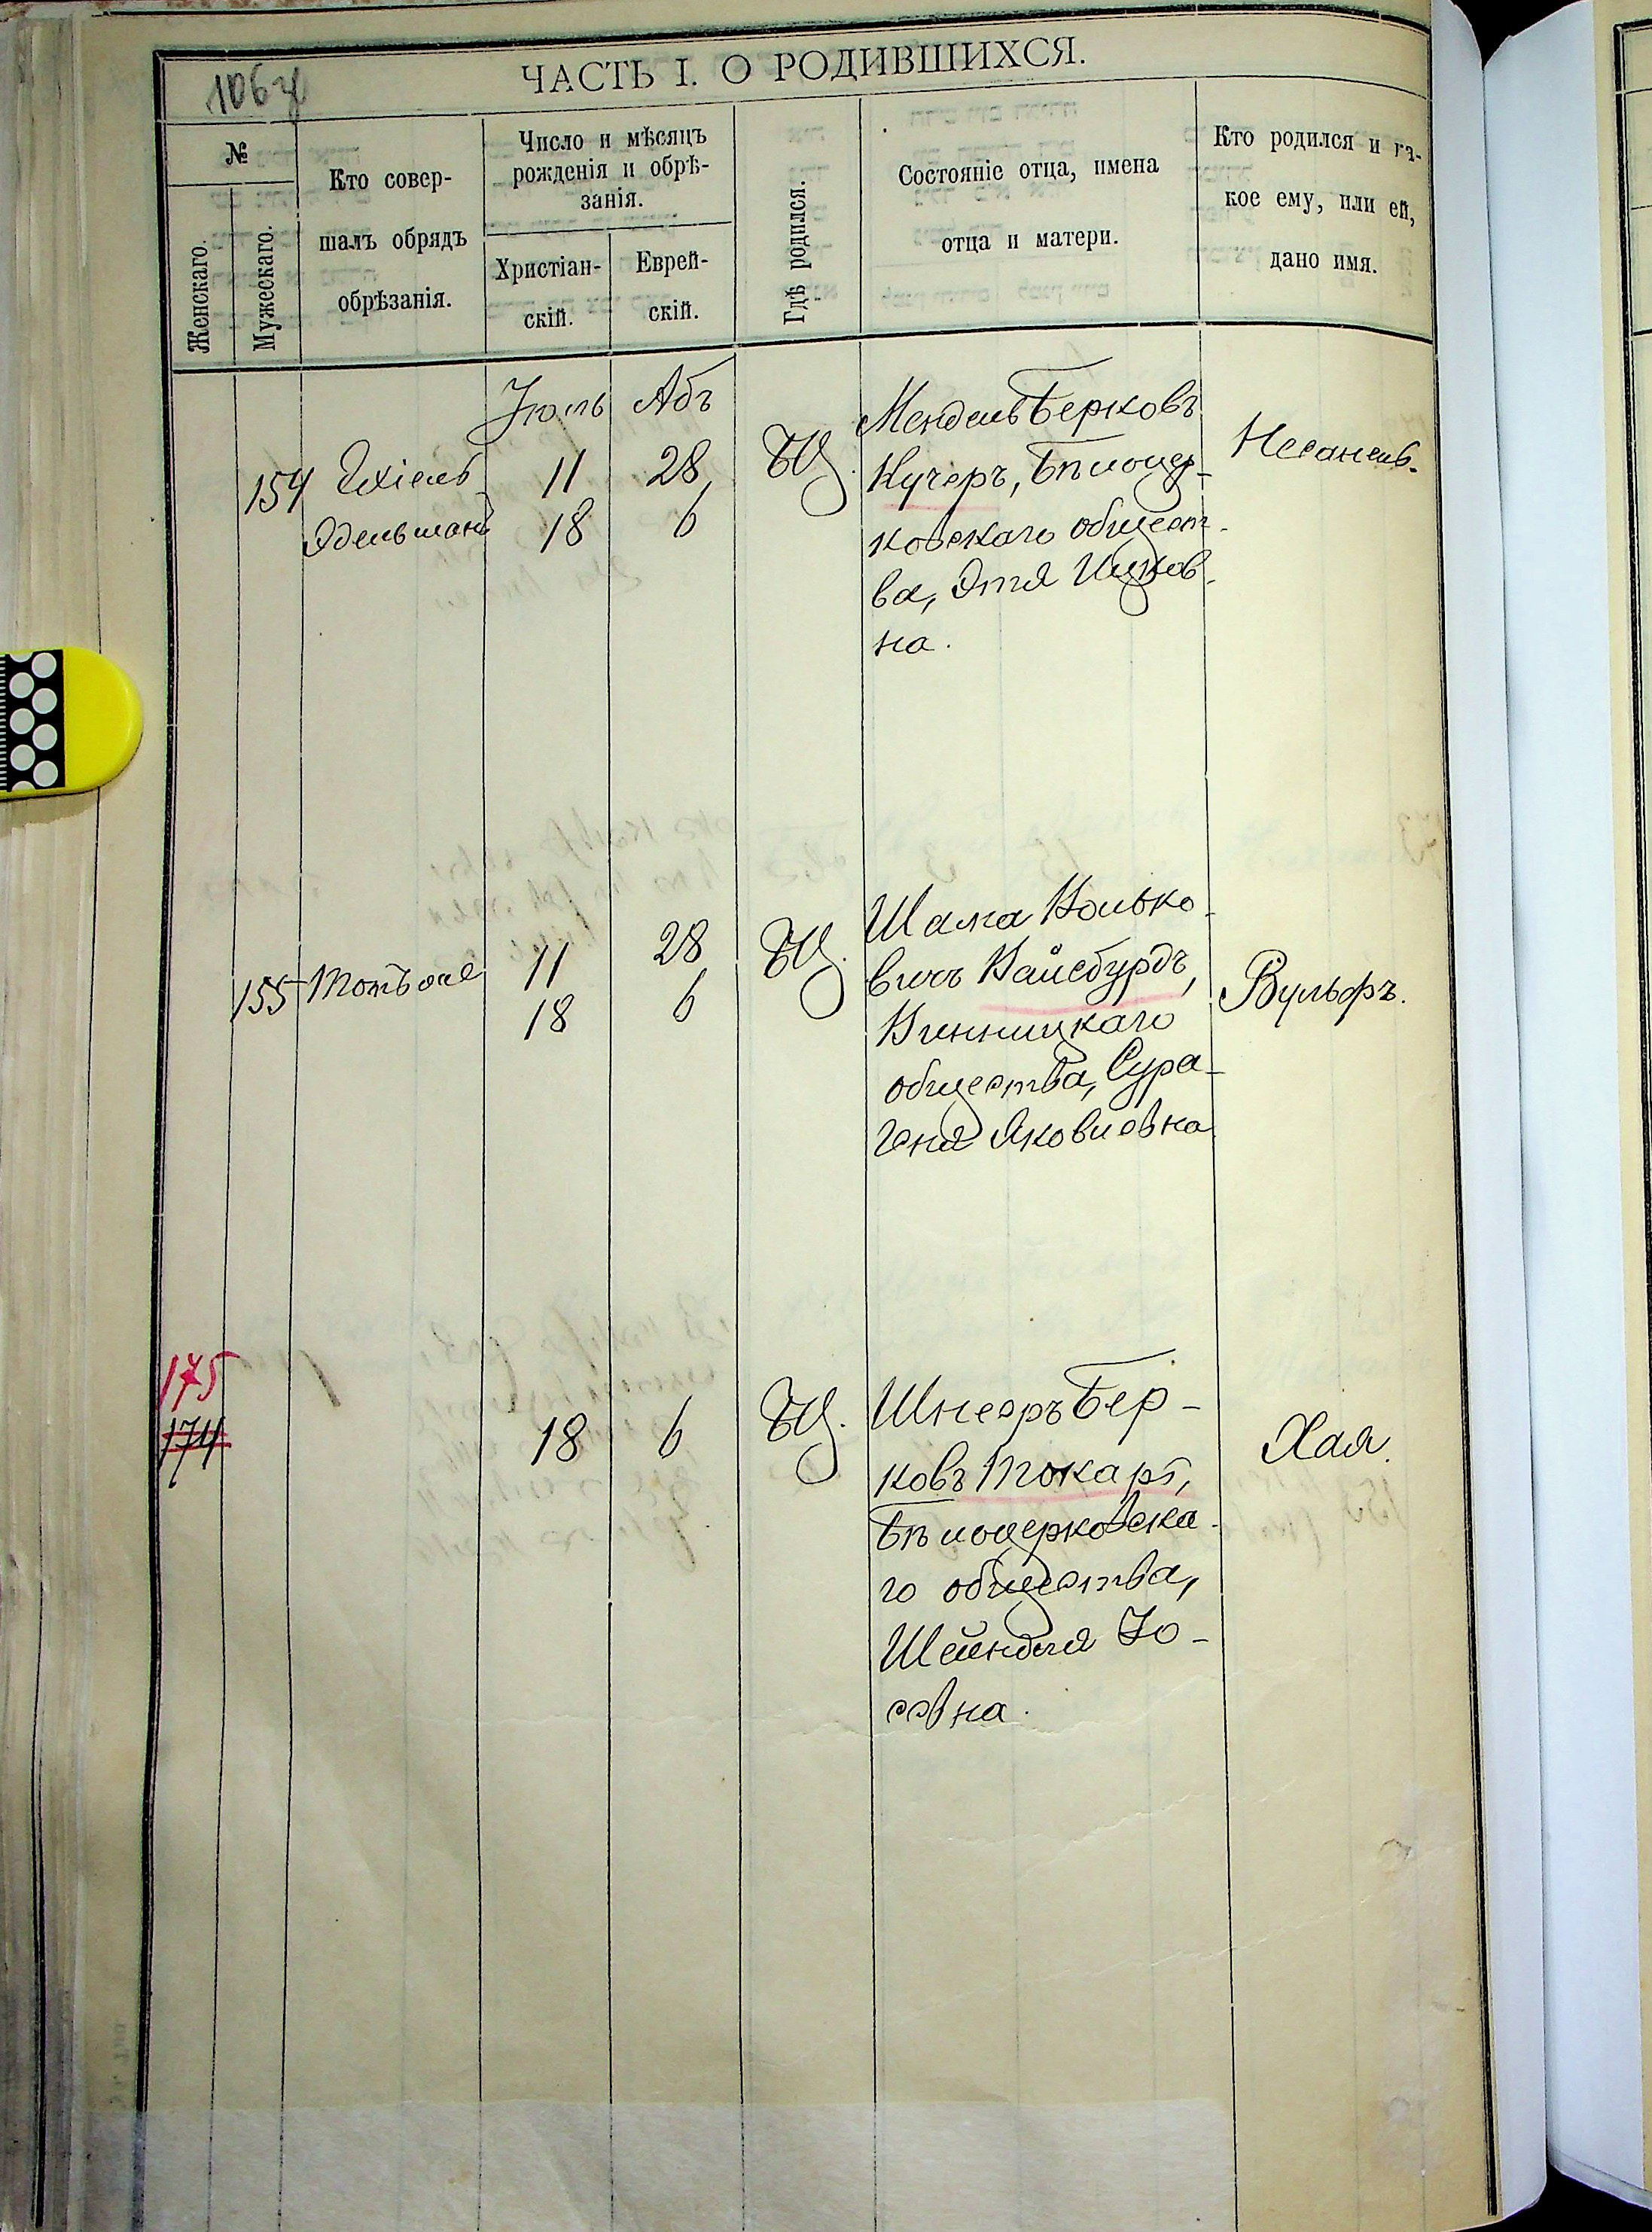 106
ЧАСТЬ I. О РОДИВШИХСЯ.
№
Женскаго.
Мужескаго.
Кто совер-
шалъ обрядъ
обрѣзанія.
Число и мѣсяцъ
рожденія и обрѣ-
занія.
Христіан-
скій.
Еврей-
скій.
Гдѣ родился.
Состояніе отца, имена
отца и матери.
Кто родился и ка-
кое ему, или ей,
дано имя.
Іюль Абъ
154 Ихіель
Эдельманъ
11 28
18 6
БЦ.
Мендель Берковъ
Кучеръ, Бѣлоцер-
ковскаго общест-
ва, Этя Ицков-
на.
Несанель.
155
11 28
18 6
БЦ.
Шама Волько-
вичъ Вайсбурдъ,
Винницкаго
общества, Сура-
Геня Яковлевна
Вульфъ.
175
174
18 6
БЦ.
Шнееръ Бер-
ковъ Токарь,
Бѣлоцерковска-
го общества,
Шейндля Іо-
севна.
Хая.